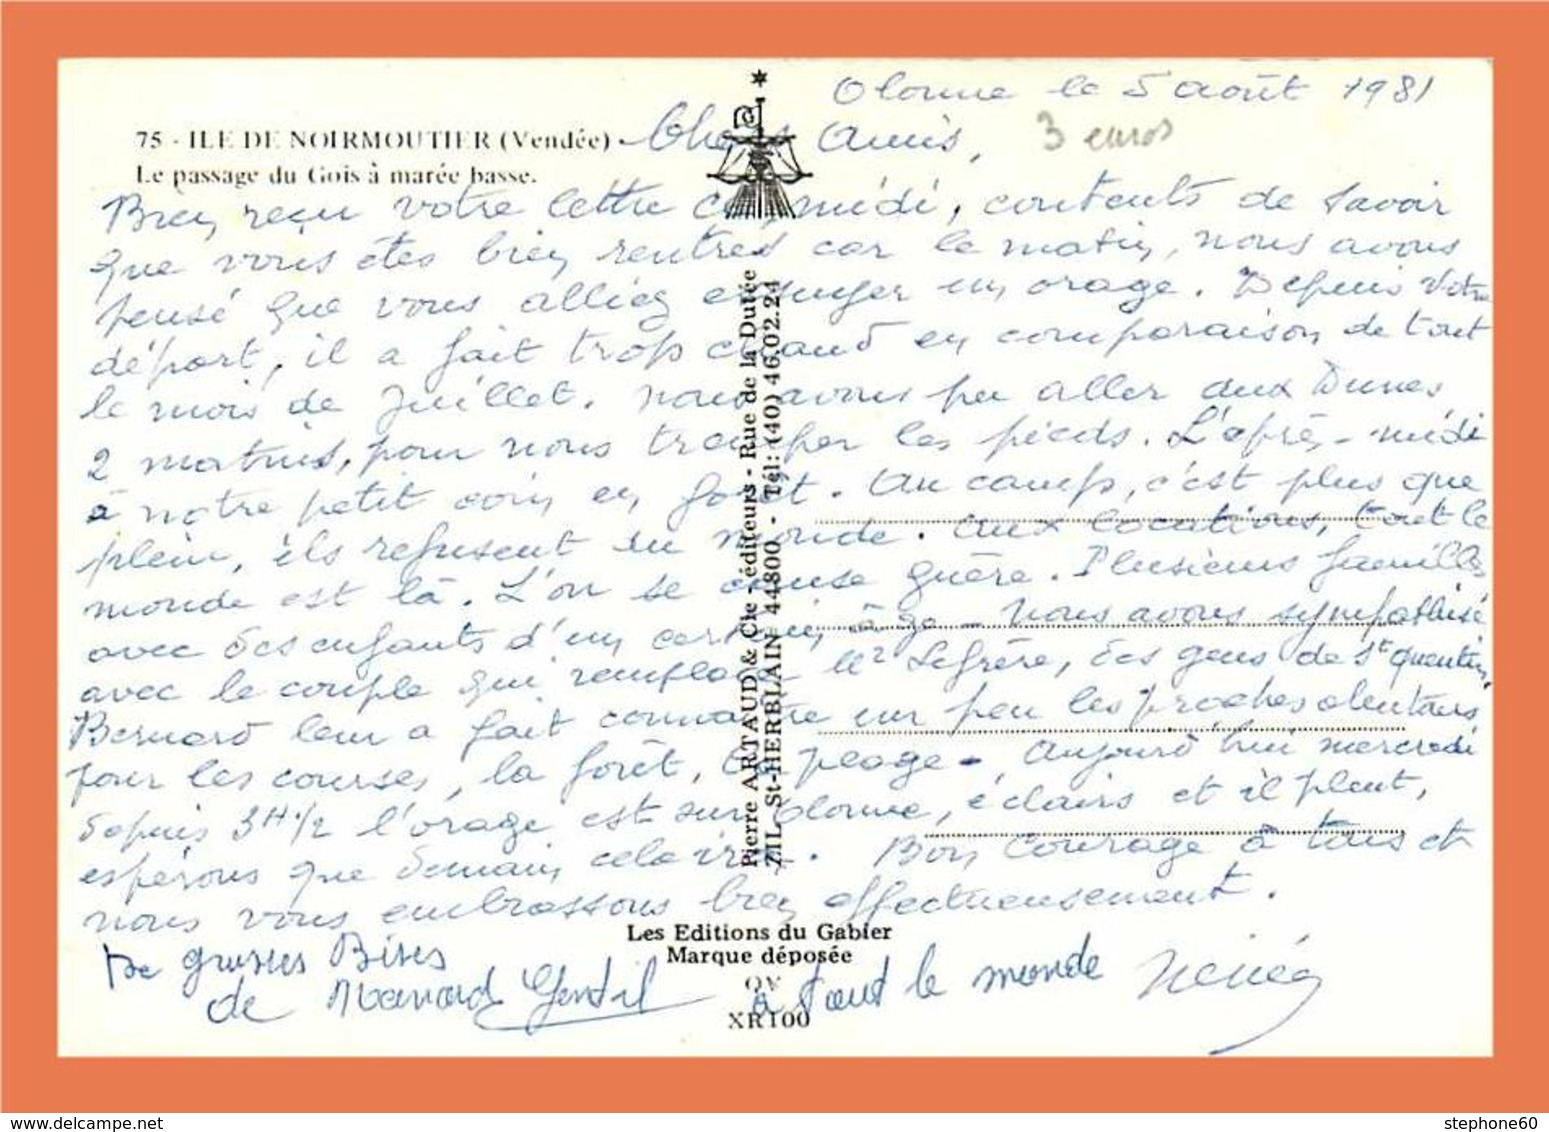 Olonne le 5 août 1981
3 euros
75 - ILE DE NOIRMOUTIER (Vendée) -
Le passage du Gois à marée basse.
Chers Amis,
Bien reçu votre lettre ce midi, contents de savoir
que vous êtes bien rentrés car le matin, nous avons
pensé que vous alliez essuyer un orage. Depuis votre
départ, il a fait trop chaud en comparaison de tout
le mois de Juillet. nous avons pu aller aux Dunes
2 matins, pour nous tremper les pieds. L'après-midi
à notre petit coin en forêt. Au camp, c'est plus que
plein, ils refusent du monde. aux locations, tout le
monde est là. L'on se cause guère. Plusieurs familles
avec des enfants d'un certain âge - Nous avons sympathisé
avec le couple qui remplace Mr Lefrère, des gens de St Quentin.
Bernard leur a fait connaître un peu les proches alentours
pour les courses, la forêt, la plage - Aujourd'hui mercredi
depuis 3H 1/2 l'orage est sur Olonne, éclairs et il pleut,
espérons que demain cela ira. Bon Courage à tous et
nous vous embrassons bien affectueusement.
De grosses Bises
de Gentil à tout le monde
Pierre ARTAUD & Cie - éditeurs - Rue de la Dutée
ZIL St-HERBLAIN 44800 - Tél: (40) 46.02.24
Les Editions du Gabier
Marque déposée
QV
XR100
stephone60